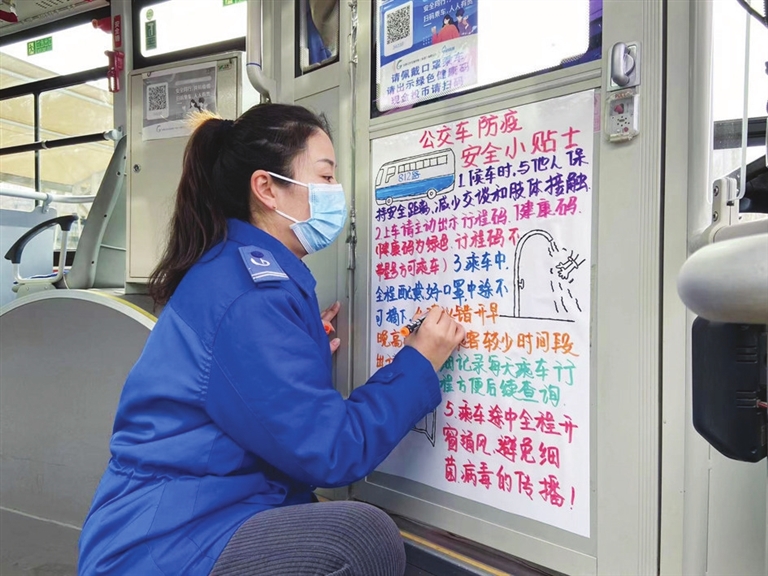 安全同行,
扫码乘车,人人科
请佩戴口罩乘车
出示绿色健康码
现金投币请扫码
公交车防疫
安全小贴士
812路
1.候车时,与他人保
持安全距离,减少交谈和肢体接触.
2.上车请主动出示行程码,健康码.
(健康码为绿色,行程码不
带星方可乘车) 3.乘车中
全程配戴好口罩中途不
可摘下.
错开早
晚高
客较少时间段
细记录每天乘车订
程方便后续查询.
5.乘车途中全程开
窗通风,避免细
菌,病毒的传播!